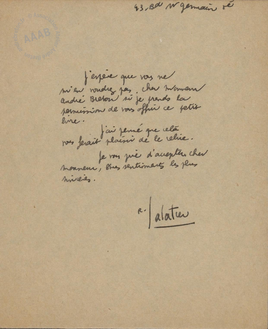 83, Bd St germain Ve
AAAB
J'espère que vous ne
m'en voudrez pas, cher monsieur
andré Breton si je prends la
permission de vous offrir ce petit
livre.
J'ai pensé que cela
vous ferait plaisir de le relire.
Je vous prie d'accepter cher
monsieur, mes sentiments les plus
sincères.